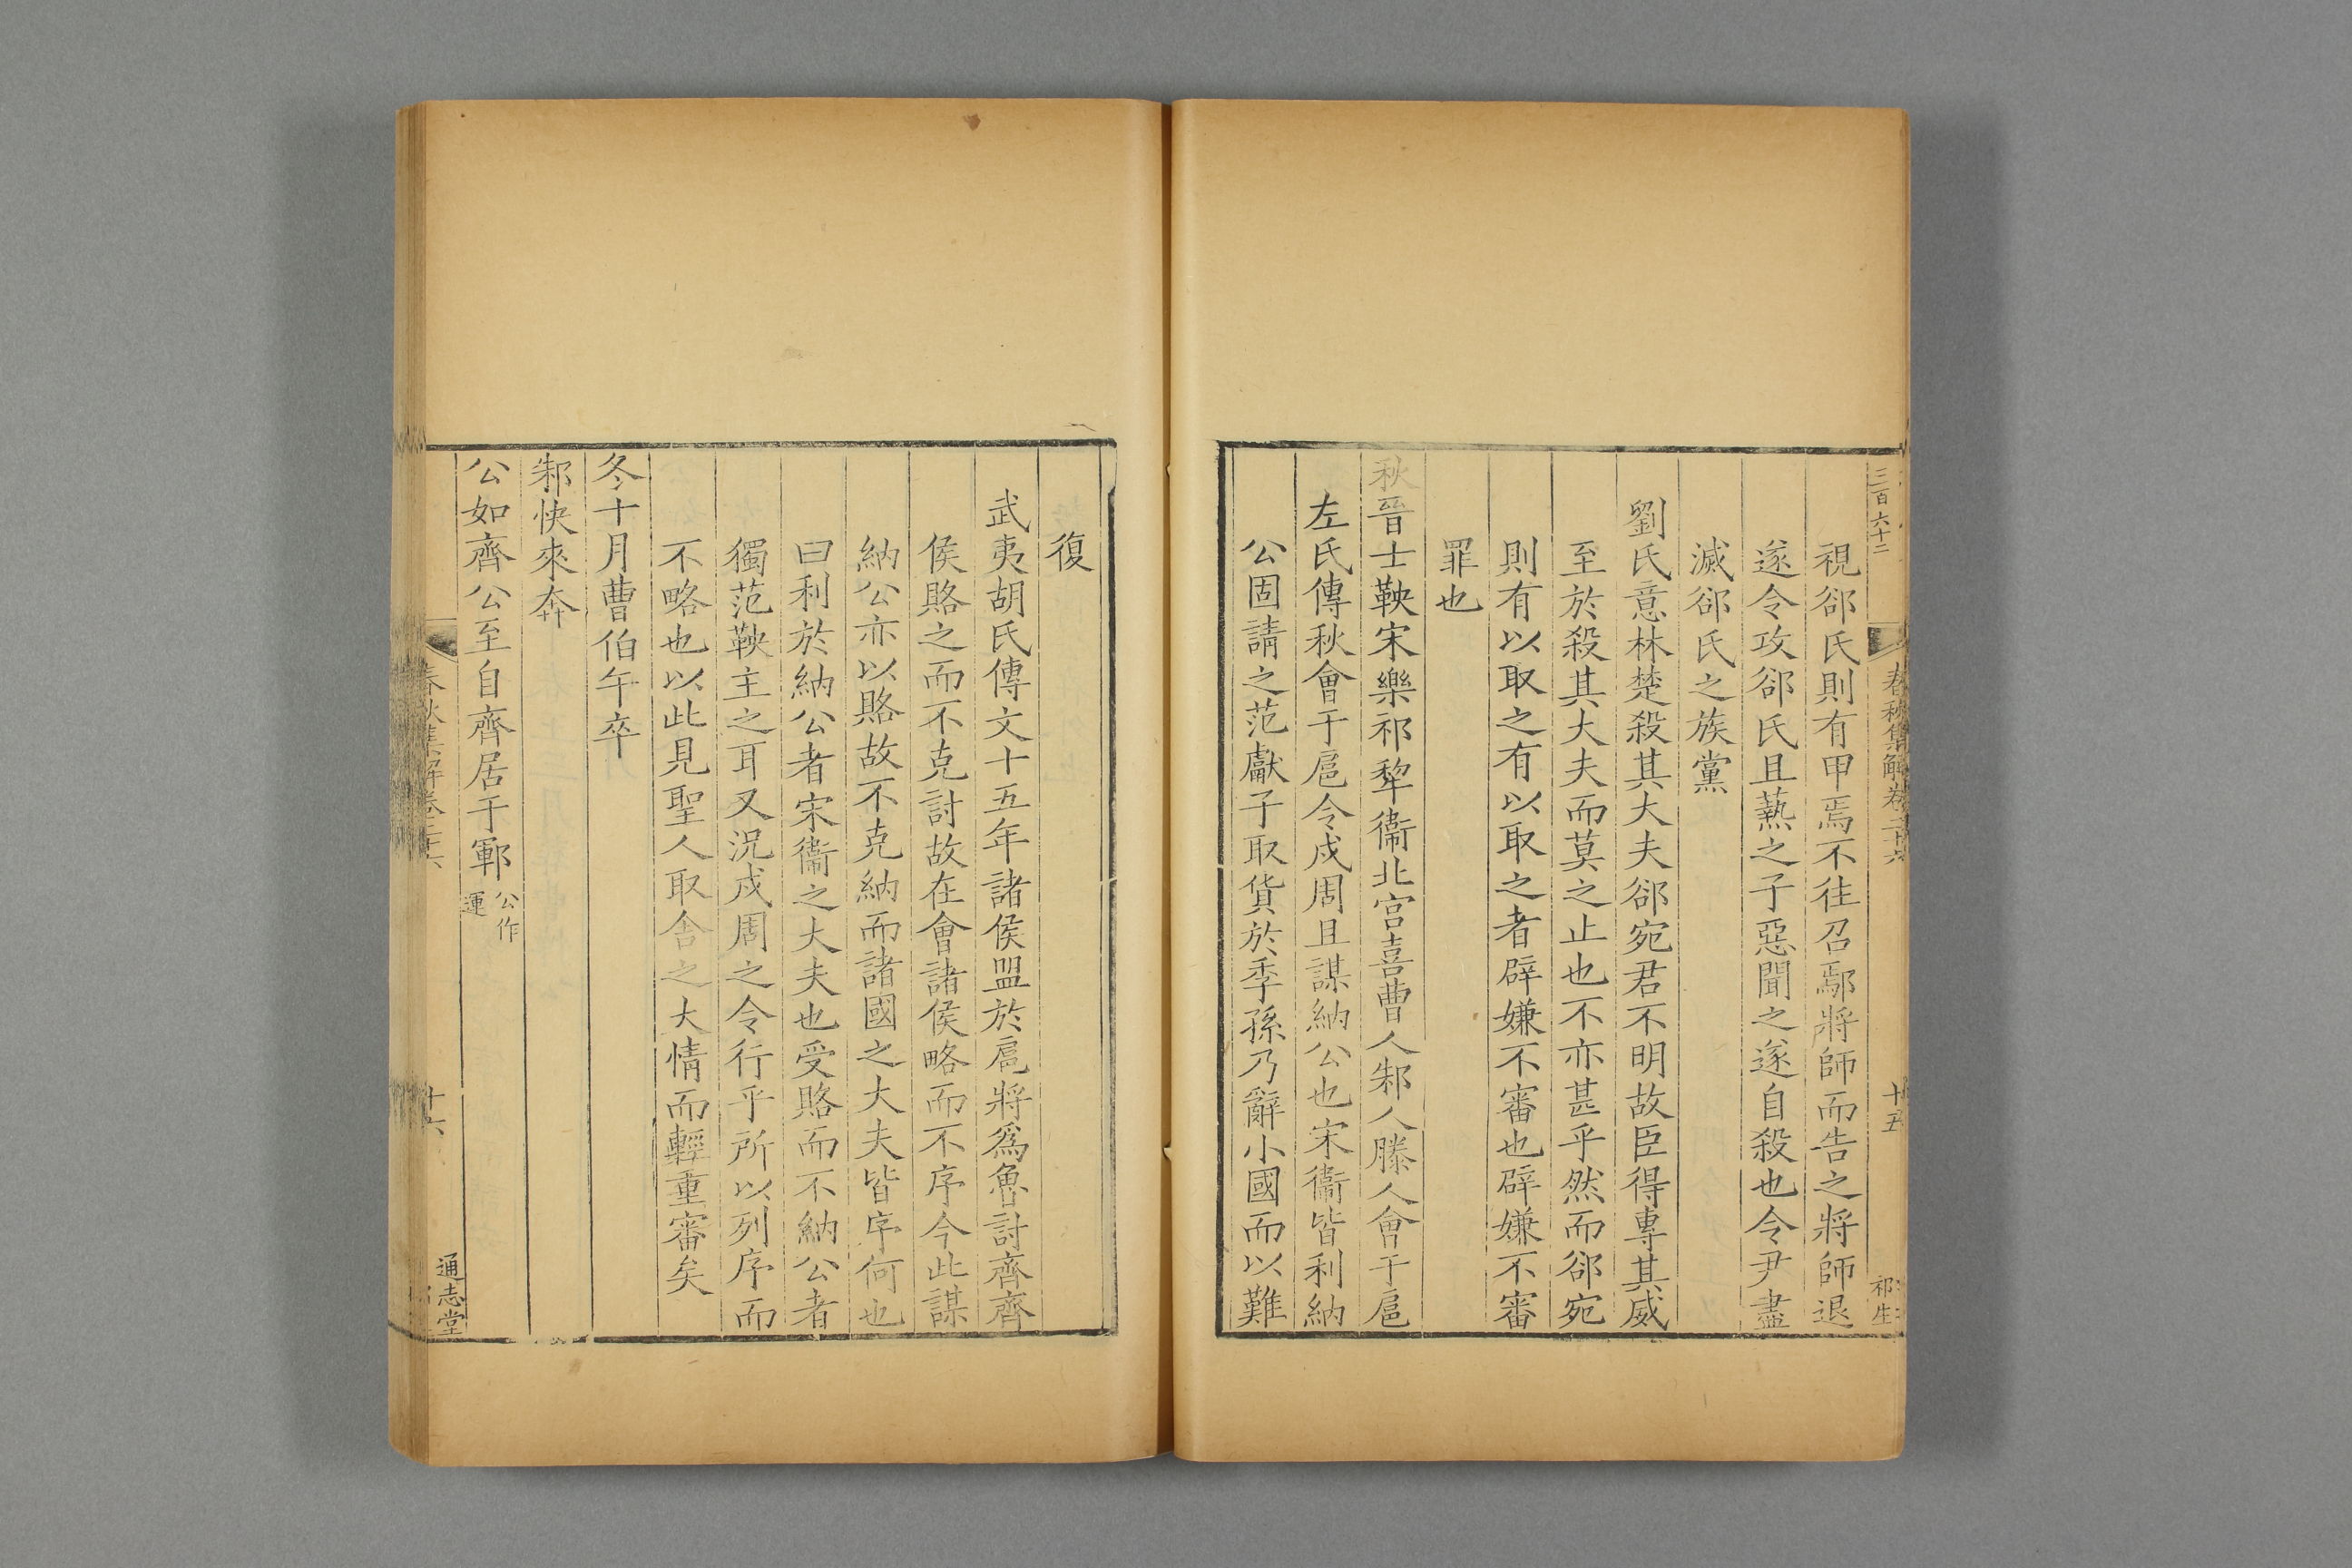 三百六十二
春秋集解卷二十六
十五
祁生
視郤氏則有甲焉不往召鄢將師而告之將師退
遂令攻郤氏且爇之子惡聞之遂自殺也令尹盡
滅郤氏之族黨
劉氏意林楚殺其大夫郤宛君不明故臣得專其威
至於殺其大夫而莫之止也不亦甚乎然而郤宛
則有以取之有以取之者辟嫌不審也辟嫌不審
罪也
秋晉士鞅宋樂祁犂衞北宮喜曹人邾人滕人會于扈
左氏傳秋會于扈令戍周且謀納公也宋衞皆利納
公固請之范獻子取貨於季孫乃辭小國而以難
復
武夷胡氏傳文十五年諸侯盟於扈將爲魯討齊齊
侯賂之而不克討故在會諸侯略而不序今此謀
納公亦以賂故不克納而諸國之大夫皆序何也
曰利於納公者宋衞之大夫也受賂而不納公者
獨范鞅主之耳又況戍周之令行乎所以列序而
不略也以此見聖人取舍之大情而輕重審矣
冬十月曹伯午卒
邾快來奔
公如齊公至自齊居于鄆公作運
春秋集解卷二十六
十六
通志堂